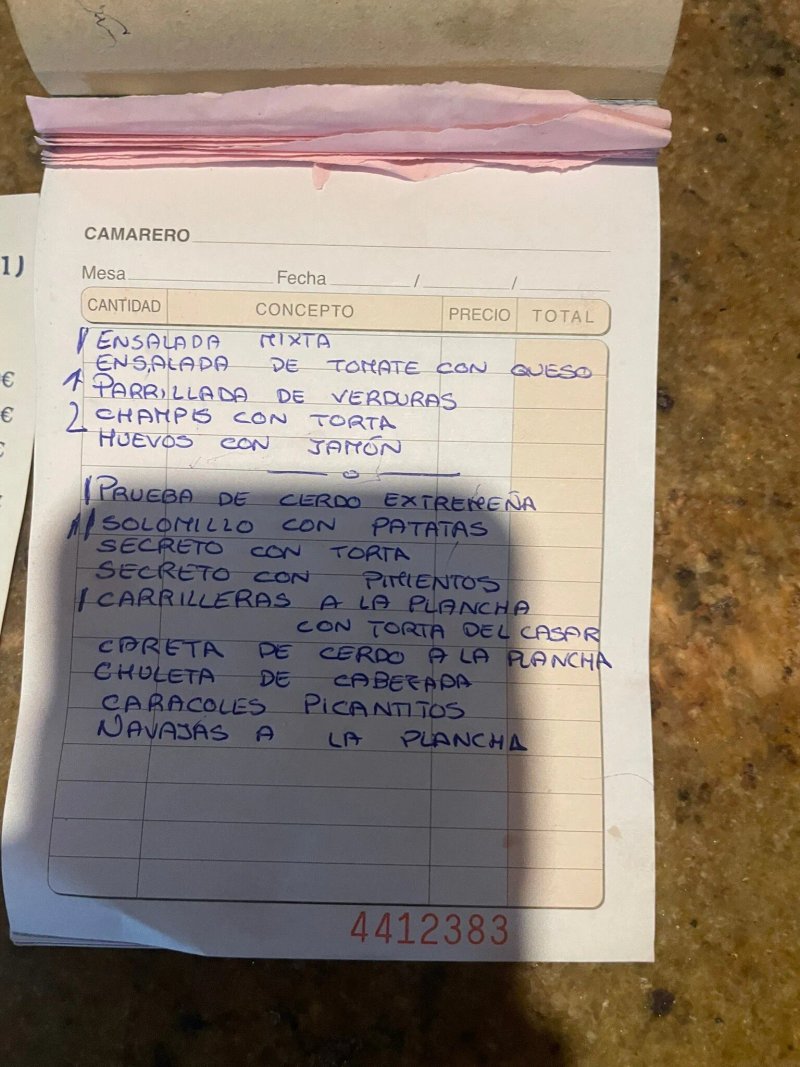 1)
€
€
CAMARERO
Mesa Fecha / /
CANTIDAD CONCEPTO PRECIO TOTAL
1 ENSALADA MIXTA
ENSALADA DE TOMATE CON QUESO
1 PARRILLADA DE VERDURAS
2 CHAMPIS CON TORTA
HUEVOS CON JAMÓN
1 PRUEBA DE CERDO EXTREMEÑA
11 SOLOMILLO CON PATATAS
SECRETO CON TORTA
SECRETO CON PIMIENTOS
1 CARRILLERAS A LA PLANCHA
CON TORTA DEL CASAR
CARETA DE CERDO A LA PLANCHA
CHULETA DE CABEZADA
CARACOLES PICANTITOS
NAVAJAS A LA PLANCHA
4412383